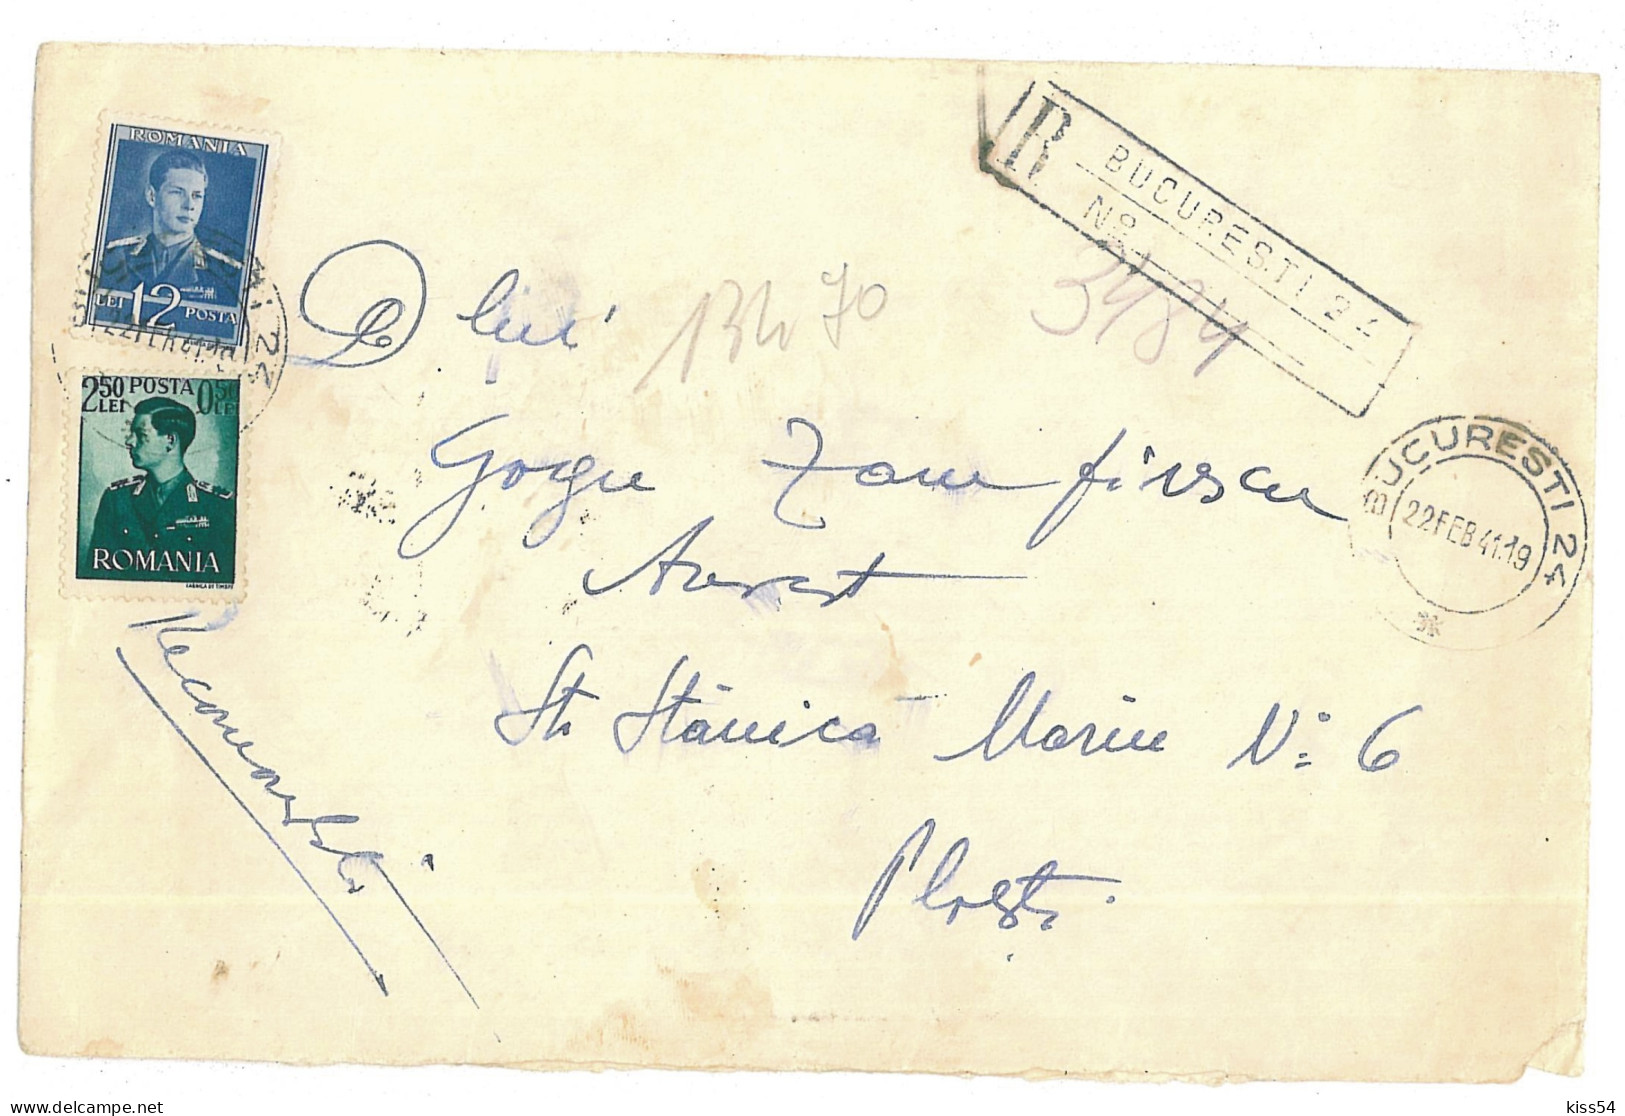 ROMANIA
LEI 12 POSTA
2 50 LEI POSTA 0 50 LEI
ROMANIA
FABRICA DE TIMBRE
R BUCURESTI 24
No
3484
BUCURESTI 24
22 FEB 41.19
D lui
Gogu Zamfirescu
Str Stănică Marin No 6
Ploești
kiss54